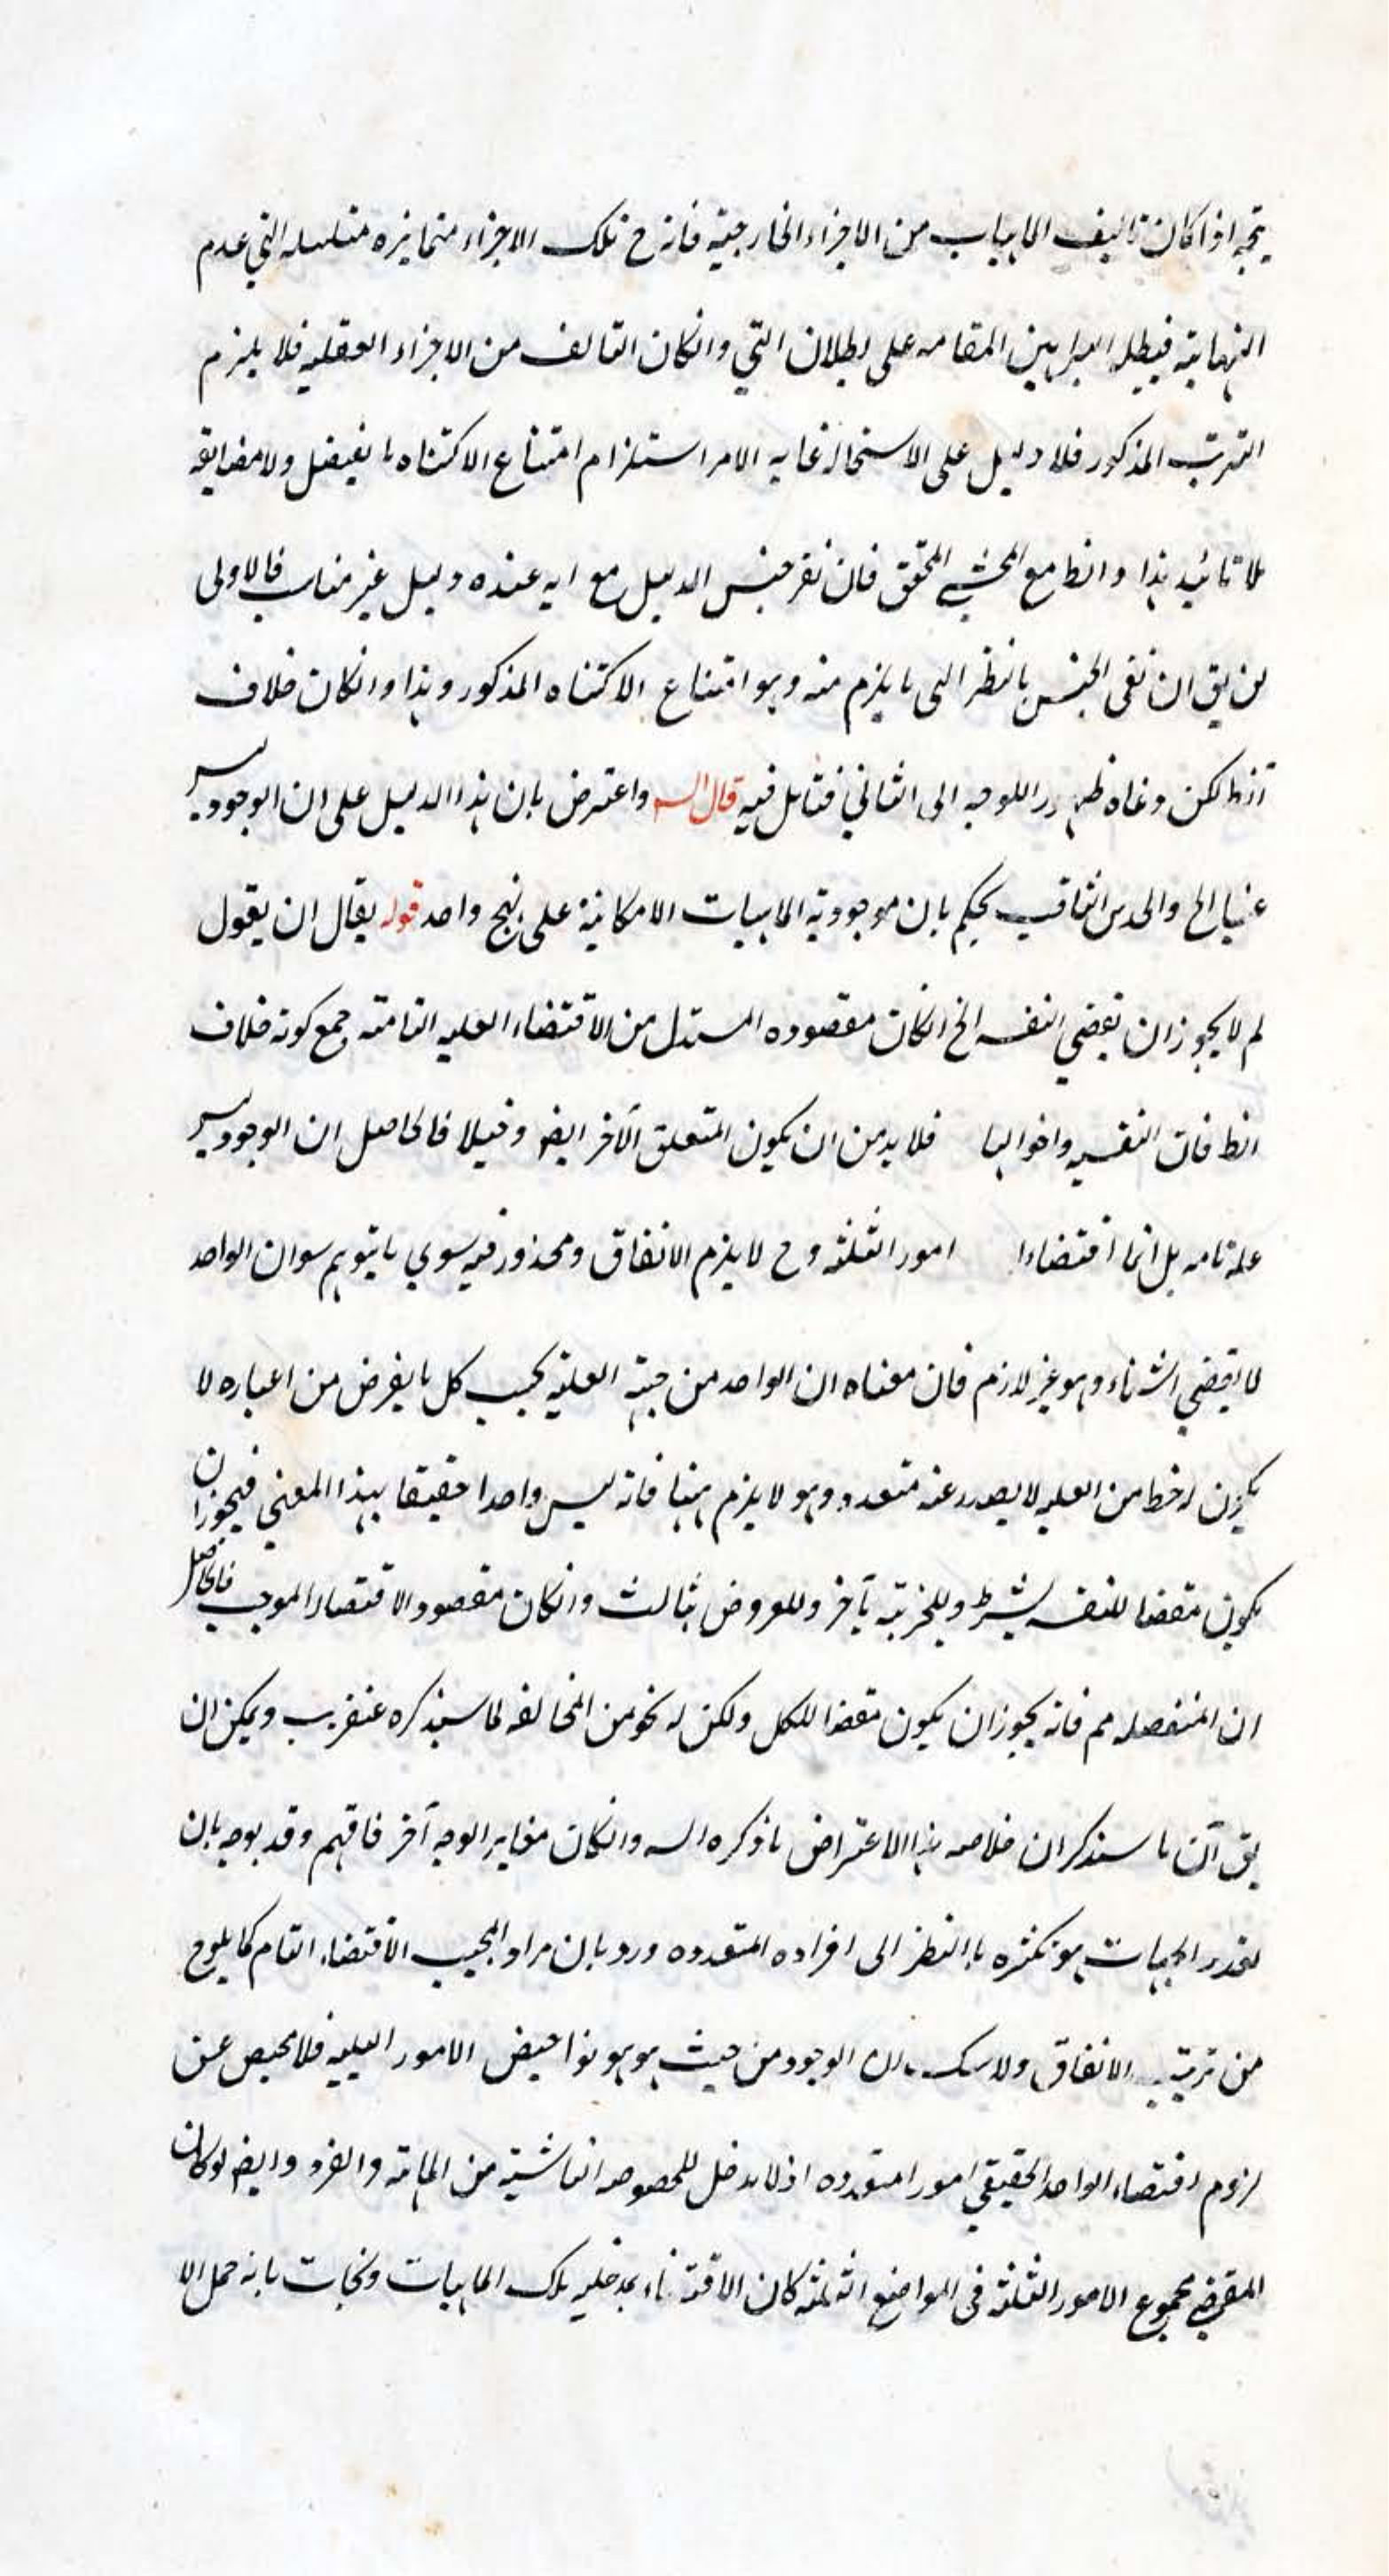 يتجه اذا كان تاليف الماهيات من الاجزاء الخارجية فانه ح تلك الاجزاء متمايزه متسلسله التي عدم
النهاية فيبطله البراهين المقامه على بطلان التي وانكان التالف من الاجزاء العقليه فلا يلزم
الترتب المذكور فلا دليل على الاستحاله غايه الامر استلزام امتناع الاكتناه بالتفصيل ولا مضايقه
تائيد هذا والظ مع المحشي المحقق فان نفى جنس الدليل مع انه عنده دليل غير مناسب فالاولى
يق ان نفى الجنس بالنظر الى ما يلزم منه وهو امتناع الاكتناه المذكور وهذا وانكان خلاف
الظ لكن دعاه ظهور اللوجه الى الثاني فتامل فيه قال الس واعترض بان هذا الدليل على ان الوجود ليس
عينا الخ والحدس الثاقب يحكم بان موجودية الماهيات الامكانية على نهج واحد قوله يقال ان يقول
لم لا يجوز ان يقتضي النفسه الخ انكان مقصوده المستدل من الاقتضاء العليه التامته فمع كونه خلاف
الظ فان النفسيه واخواتها فلا بد من ان يكون المتعلق الآخر ايضو دخيلا فالحاصل ان الوجود ليس
علة تامه بل انما اقتضاءا امور الثلثه وح لا يلزم الانفاق ومحذور فيه سوي ما يتوهم سوان الواحد
لا يقتضي اشياء وهو غير لازم فان معناه ان الواحد من جهة العلية بحسب كل ما يفرض من اعتباره لا
يكون له خط من العليه لا يصدر عنه متعدد وهو لا يلزم ههنا فانه ليس واحدا حقيقا بهذا المعني فيجوز ان
يكون مقتضا للنفسه بشرط وللجزيته بآخر وللعروض بثالث وانكان مقصود الاقتضاء الموجب فالحاصل
ان المنفصله مم فانه يجوز ان يكون مقتضا للكل ولكن له نحو من المخالفه لما سيذكره عنقريب ويمكن ان
يق آن ما سنذكر ان خلاصه هذا الاعتراض ما ذكره الس وانكان مغاير الوجه آخر فافهم وقد يوجه بان
تعدد الجهات هو تكثره بالنظر الى افراده المتعدده ورد بان مراد المجيب الاقتضاء التام كما يلوح
من ترتيب الانفاق ولا شك ان الوجود من حيث هو هو الامور العليه فلا محيص عن
لزوم اقتضاء الواحد الحقيقي امور امتعدده اذ لا مدخل للخصوصه الناشية من الماهية والفرد وايضو لو كان
المقتضي مجموع الامور الثلثة في المواضع الثلثه كان الاقتضاء بمدخليه تلك الماهيات ونجات بانه حمل الا